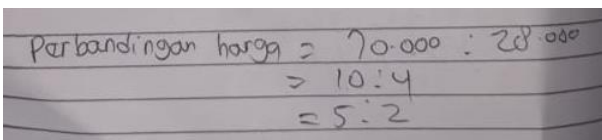 Perbandingan harga = 70.000 : 28.000
= 10 : 4
= 5 : 2